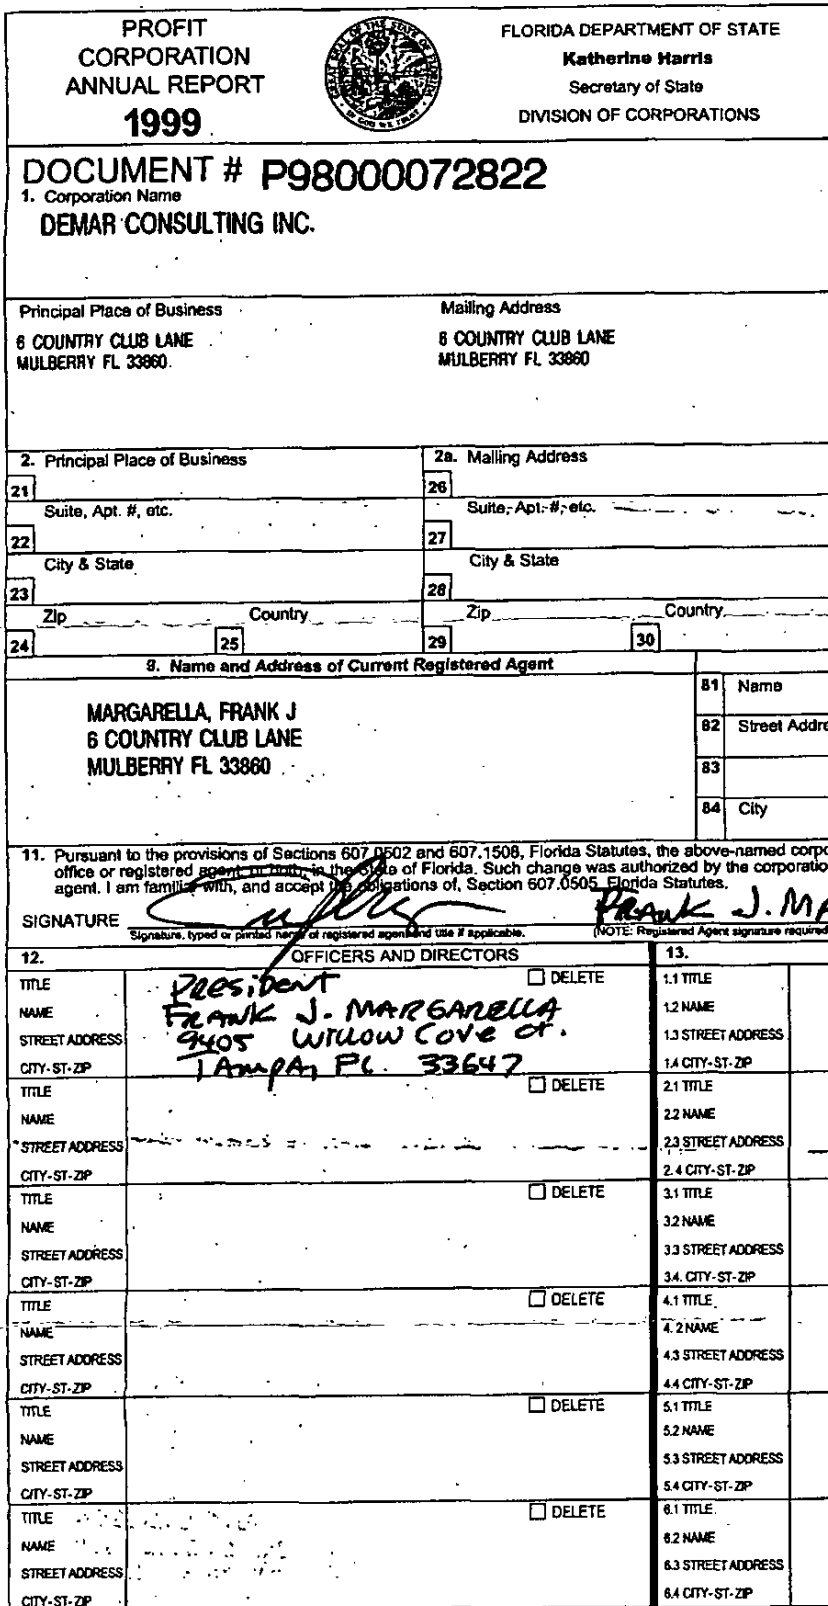 PROFIT
CORPORATION
ANNUAL REPORT
1999
FLORIDA DEPARTMENT OF STATE
Katherine Harris
Secretary of State
DIVISION OF CORPORATIONS
DOCUMENT # P98000072822
1. Corporation Name
DEMAR CONSULTING INC.
Principal Place of Business
Mailing Address
6 COUNTRY CLUB LANE
MULBERRY FL 33860
6 COUNTRY CLUB LANE
MULBERRY FL 33860
2. Principal Place of Business
2a. Mailing Address
21
26
Suite, Apt. #, etc.
Suite, Apt. #, etc.
22
27
City & State
City & State
23
28
Zip
Country
Zip
Country
24
25
29
30
9. Name and Address of Current Registered Agent
MARGARELLA, FRANK J
6 COUNTRY CLUB LANE
MULBERRY FL 33860
81 Name
82 Street Addre
83
84 City
11. Pursuant to the provisions of Sections 607.0502 and 607.1508, Florida Statutes, the above-named corpo
office or registered agent, or both, in the State of Florida. Such change was authorized by the corporatio
agent. I am familiar with, and accept the obligations of, Section 607.0505, Florida Statutes.
SIGNATURE
FRANK J. MA
Signature, typed or printed name of registered agent and title if applicable.
(NOTE: Registered Agent signature required
12. OFFICERS AND DIRECTORS
13.
TITLE President DELETE
NAME FRANK J. MARGARELLA
STREET ADDRESS 9405 Willow Cove Ct.
CITY-ST-ZIP TAmpA, FL. 33647
1.1 TITLE
1.2 NAME
1.3 STREET ADDRESS
1.4 CITY-ST-ZIP
TITLE DELETE
NAME
STREET ADDRESS
CITY-ST-ZIP
2.1 TITLE
2.2 NAME
2.3 STREET ADDRESS
2.4 CITY-ST-ZIP
TITLE DELETE
NAME
STREET ADDRESS
CITY-ST-ZIP
3.1 TITLE
3.2 NAME
3.3 STREET ADDRESS
3.4. CITY-ST-ZIP
TITLE DELETE
NAME
STREET ADDRESS
CITY-ST-ZIP
4.1 TITLE
4.2 NAME
4.3 STREET ADDRESS
4.4 CITY-ST-ZIP
TITLE DELETE
NAME
STREET ADDRESS
CITY-ST-ZIP
5.1 TITLE
5.2 NAME
5.3 STREET ADDRESS
5.4 CITY-ST-ZIP
TITLE DELETE
NAME
STREET ADDRESS
CITY-ST-ZIP
6.1 TITLE
6.2 NAME
6.3 STREET ADDRESS
6.4 CITY-ST-ZIP